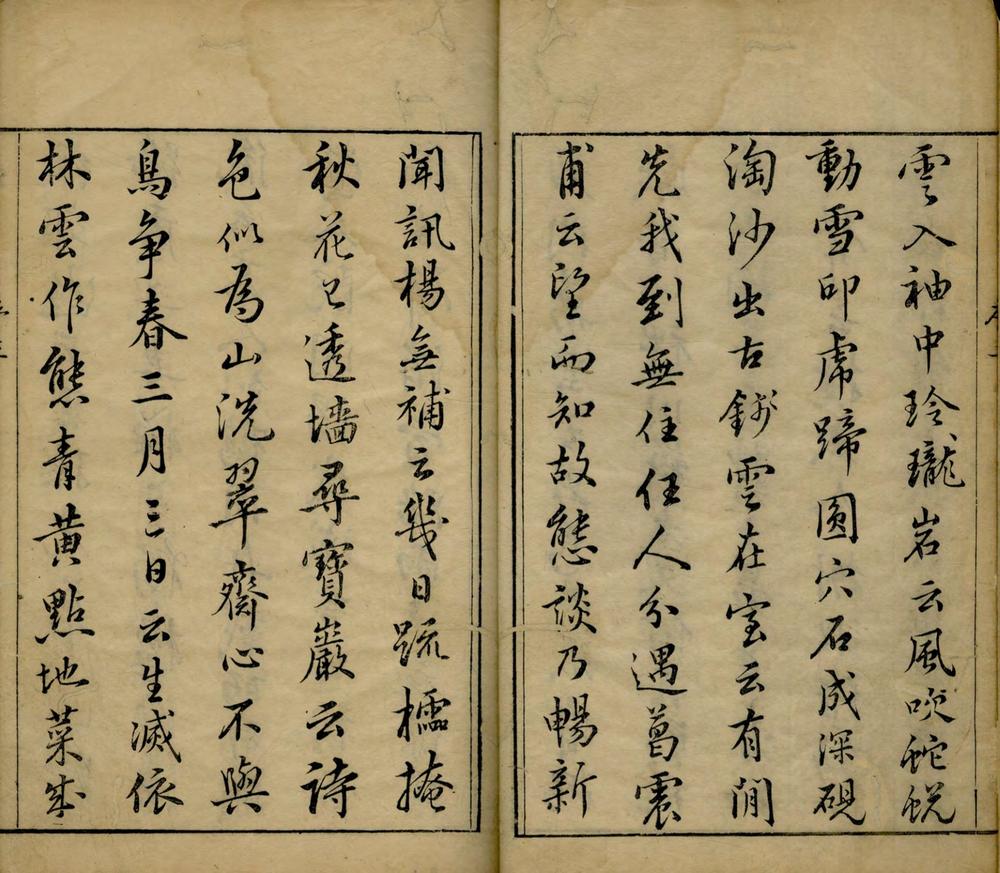 雲入袖中玲瓏岩云風吹蛇蛻
動雪印虎蹄圓穴石成深硯
淘沙出古錢雲在室云有閒
先我到無住任人分遇葛震
甫云望而知故態談乃暢新
聞訊楊無補云幾日疏櫺掩
秋花已透墻尋寶巖云詩
色似為山洗翠齋心不與
鳥争春三月三日云生滅依
林雲作態青黄點地菜成